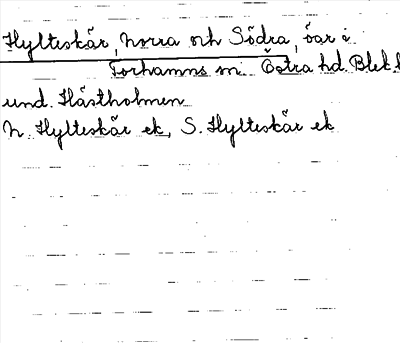 Hylteskär, Norra och Södra, öar i
Torhamns sn Östra hd. Blek.l
und. Hästholmen
N. Hylteskär ek, S. Hylteskär ek